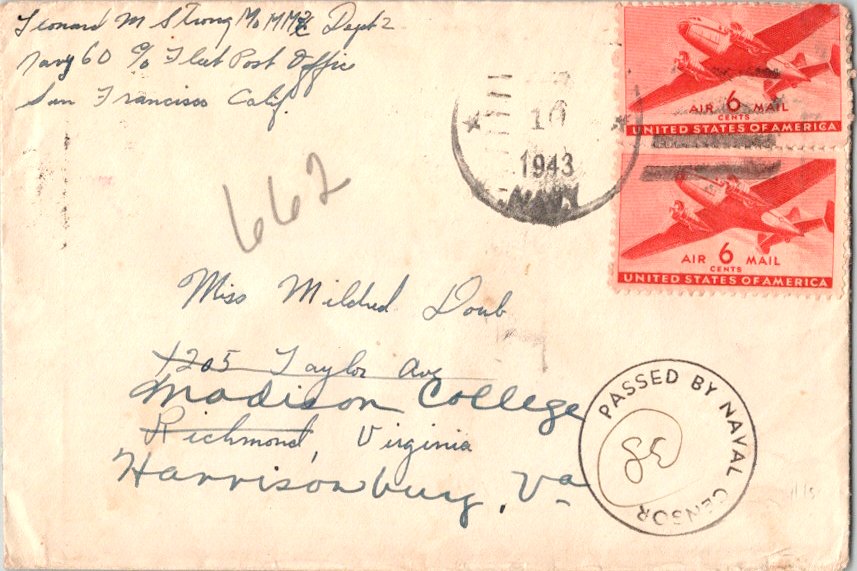 Leonard M Strong MoMM2/c Dept 2
Navy 60 % Fleet Post Office
San Francisco Calif.
10
1943
NAVY
AIR 6 MAIL
CENTS
UNITED STATES OF AMERICA
AIR 6 MAIL
CENTS
UNITED STATES OF AMERICA
662
Miss Mildred Doub
1205 Taylor Ave
Madison College
Richmond, Virginia
Harrisonburg, Va
PASSED BY NAVAL CENSOR